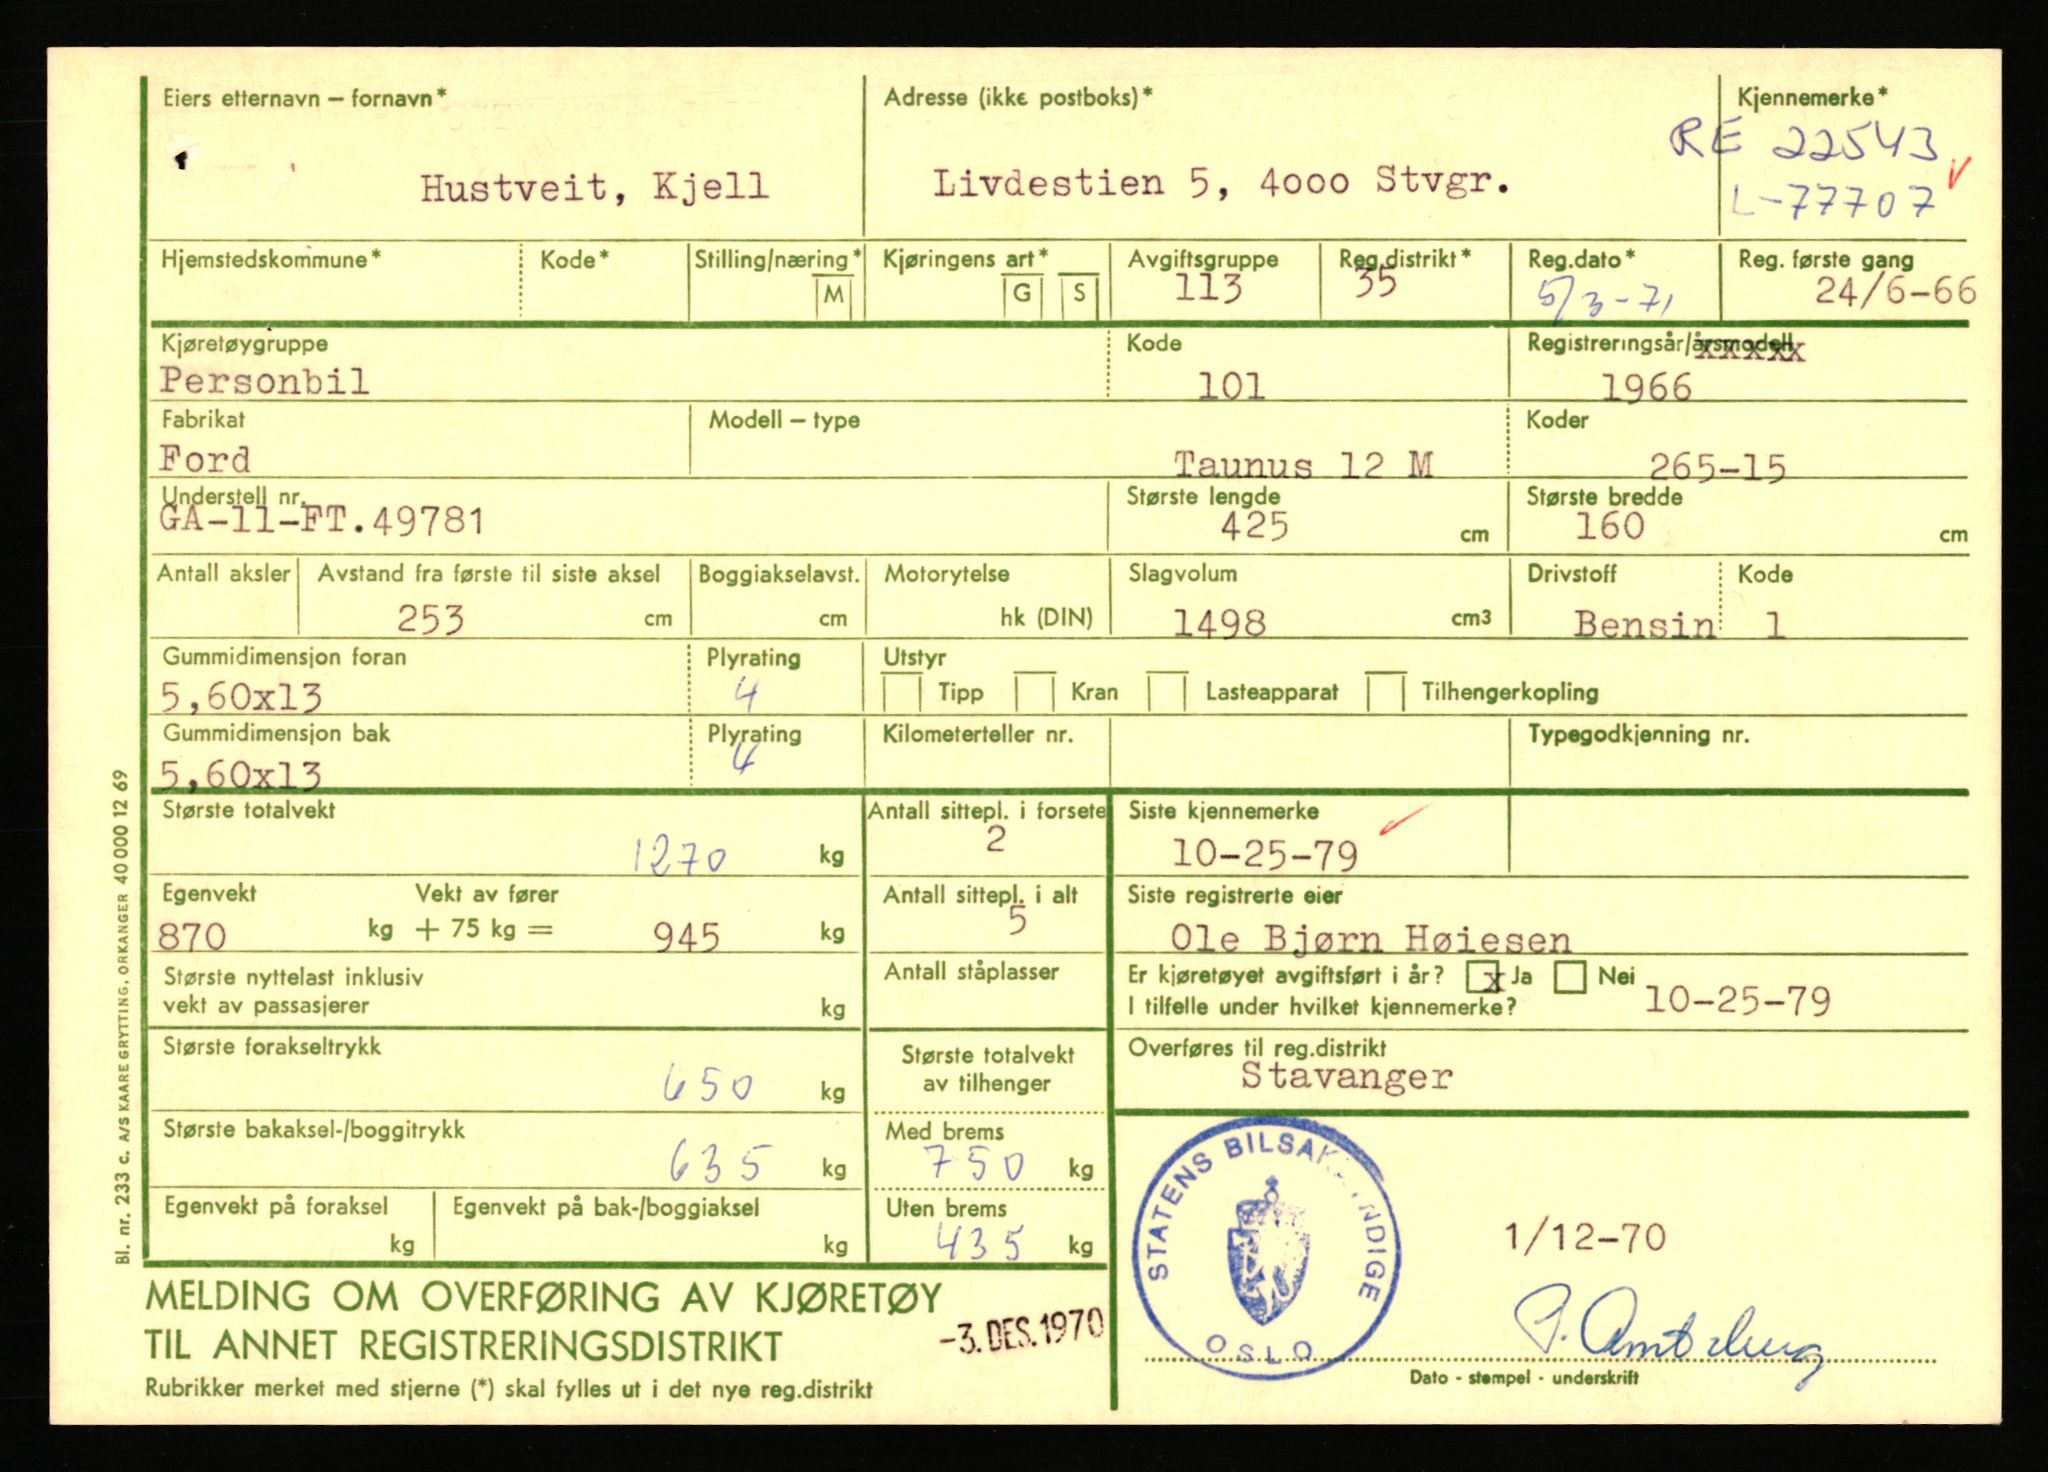 Eiers etternavn – fornavn*
Hustveit, Kjell
Adresse (ikke postboks)*
Livdestien 5, 4000 Stvgr.
Kjennemerke*
RE 22543
L-77707
Hjemstedskommune*
Kode*
Stilling/næring*
M
Kjøringens art*
G S
Avgiftsgruppe
113
Reg.distrikt*
35
Reg.dato*
5/3-71
Reg. første gang
24/6-66
Kjøretøygruppe
Personbil
Kode
101
Registreringsår/årsmodell
xxxxx
1966
Fabrikat
Ford
Modell – type
Taunus 12 M
Koder
265-15
Understell nr.
GA-11-FT.49781
Største lengde
425 cm
Største bredde
160 cm
Antall aksler
Avstand fra første til siste aksel
253 cm
Boggiakselavst.
cm
Motorytelse
hk (DIN)
Slagvolum
1498 cm3
Drivstoff
Bensin
Kode
1
Gummidimensjon foran
5,60x13
Plyrating
4
Utstyr
Tipp Kran Lasteapparat Tilhengerkopling
Gummidimensjon bak
5,60x13
Plyrating
4
Kilometerteller nr.
Typegodkjenning nr.
Største totalvekt
1270 kg
Antall sittepl. i forsete
2
Siste kjennemerke
10-25-79
Egenvekt Vekt av fører
870 kg + 75 kg = 945 kg
Antall sittepl. i alt
5
Siste registrerte eier
Ole Bjørn Høiesen
Største nyttelast inklusiv
vekt av passasjerer kg
Antall ståplasser
Er kjøretøyet avgiftsført i år? x Ja Nei
I tilfelle under hvilket kjennemerke? 10-25-79
Største forakseltrykk
650 kg
Største totalvekt
av tilhenger
Overføres til reg.distrikt
Stavanger
Største bakaksel-/boggitrykk
635 kg
Med brems
750 kg
Egenvekt på foraksel
kg
Egenvekt på bak-/boggiaksel
kg
Uten brems
435 kg
STATENS BILSAKKYNDIGE
OSLO
1/12-70
MELDING OM OVERFØRING AV KJØRETØY
TIL ANNET REGISTRERINGSDISTRIKT
-3. DES. 1970
Rubrikker merket med stjerne (*) skal fylles ut i det nye reg.distrikt
Dato - stempel - underskrift
Bl. nr. 233 c. A/S KAARE GRYTTING, ORKANGER 40 000 12 69